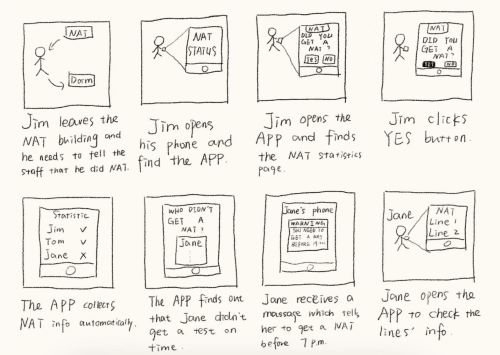 NAT
Dorm
Jim leaves the
NAT building and
he needs to tell the
staff that he did NAT.
NAT
STATUS
Jim opens
his phone and
find the APP.
NAT
DID YOU
GET A
NAT?
Yes NO
Jim opens the
APP and finds
the NAT statistics
page.
NAT
DID YOU
GET A
NAT?
Jim clicks
YES button.
Statistic
Jim ✓
Tom ✓
Jane ✗
The APP collects
NAT info automatically.
WHO DIDN'T
GET A
NAT?
Jane
The APP finds out
that Jane didn't
get a test on
time.
Jane's phone
WARNING
YOU NEED TO
GET A NAT
BEFORE
Jane receives a
massage which tells
her to get a NAT
before 7 p.m.
Jane
NAT
Line 1
Line 2
Jane opens the
APP to check the
lines' info.